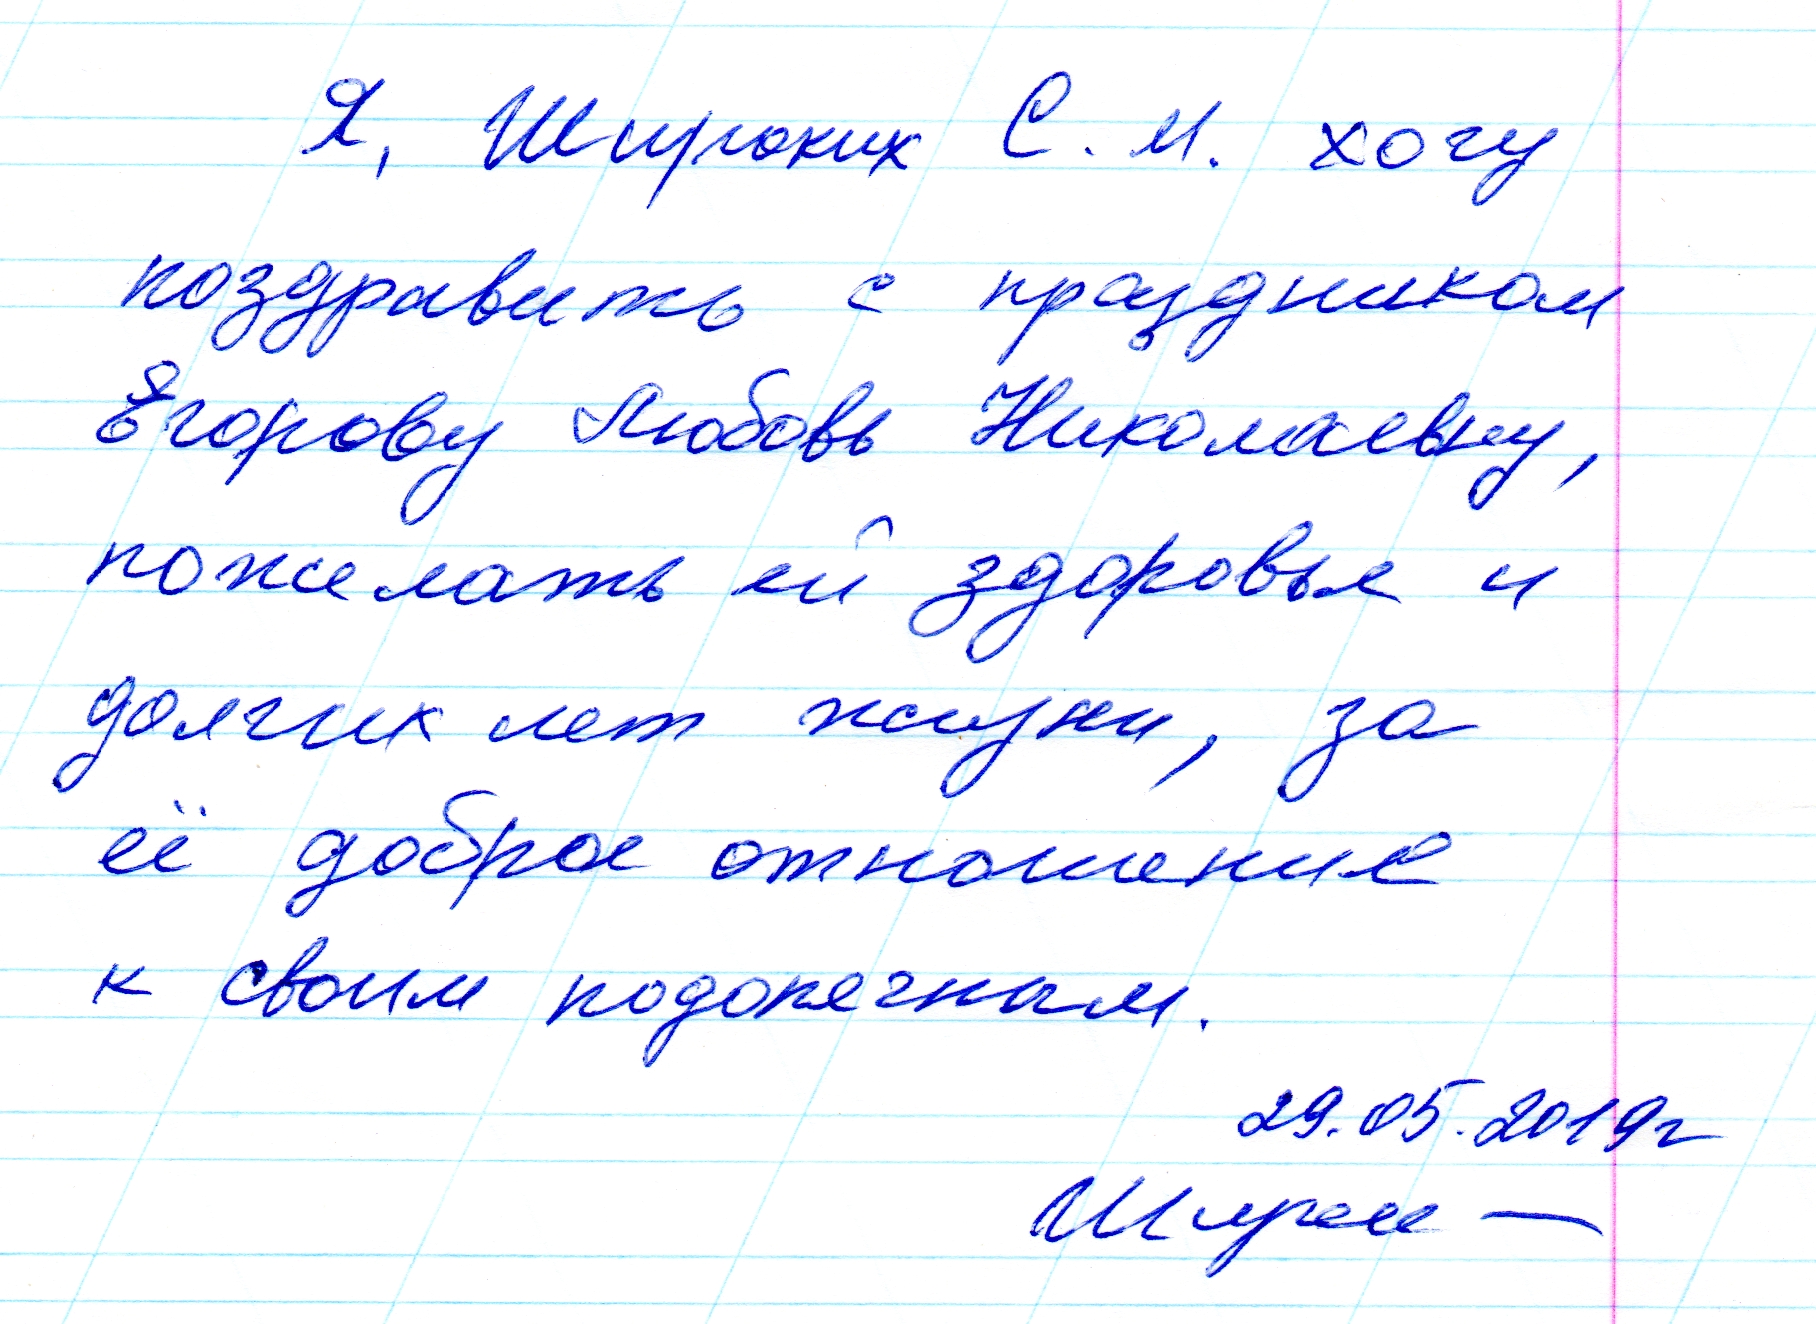 Я, Широких С. М. хочу
поздравить с праздником
Егорову Любовь Николаевну,
пожелать ей здоровья и
долгих лет жизни, за
её доброе отношение
к своим подопечным.
29.05.2019г